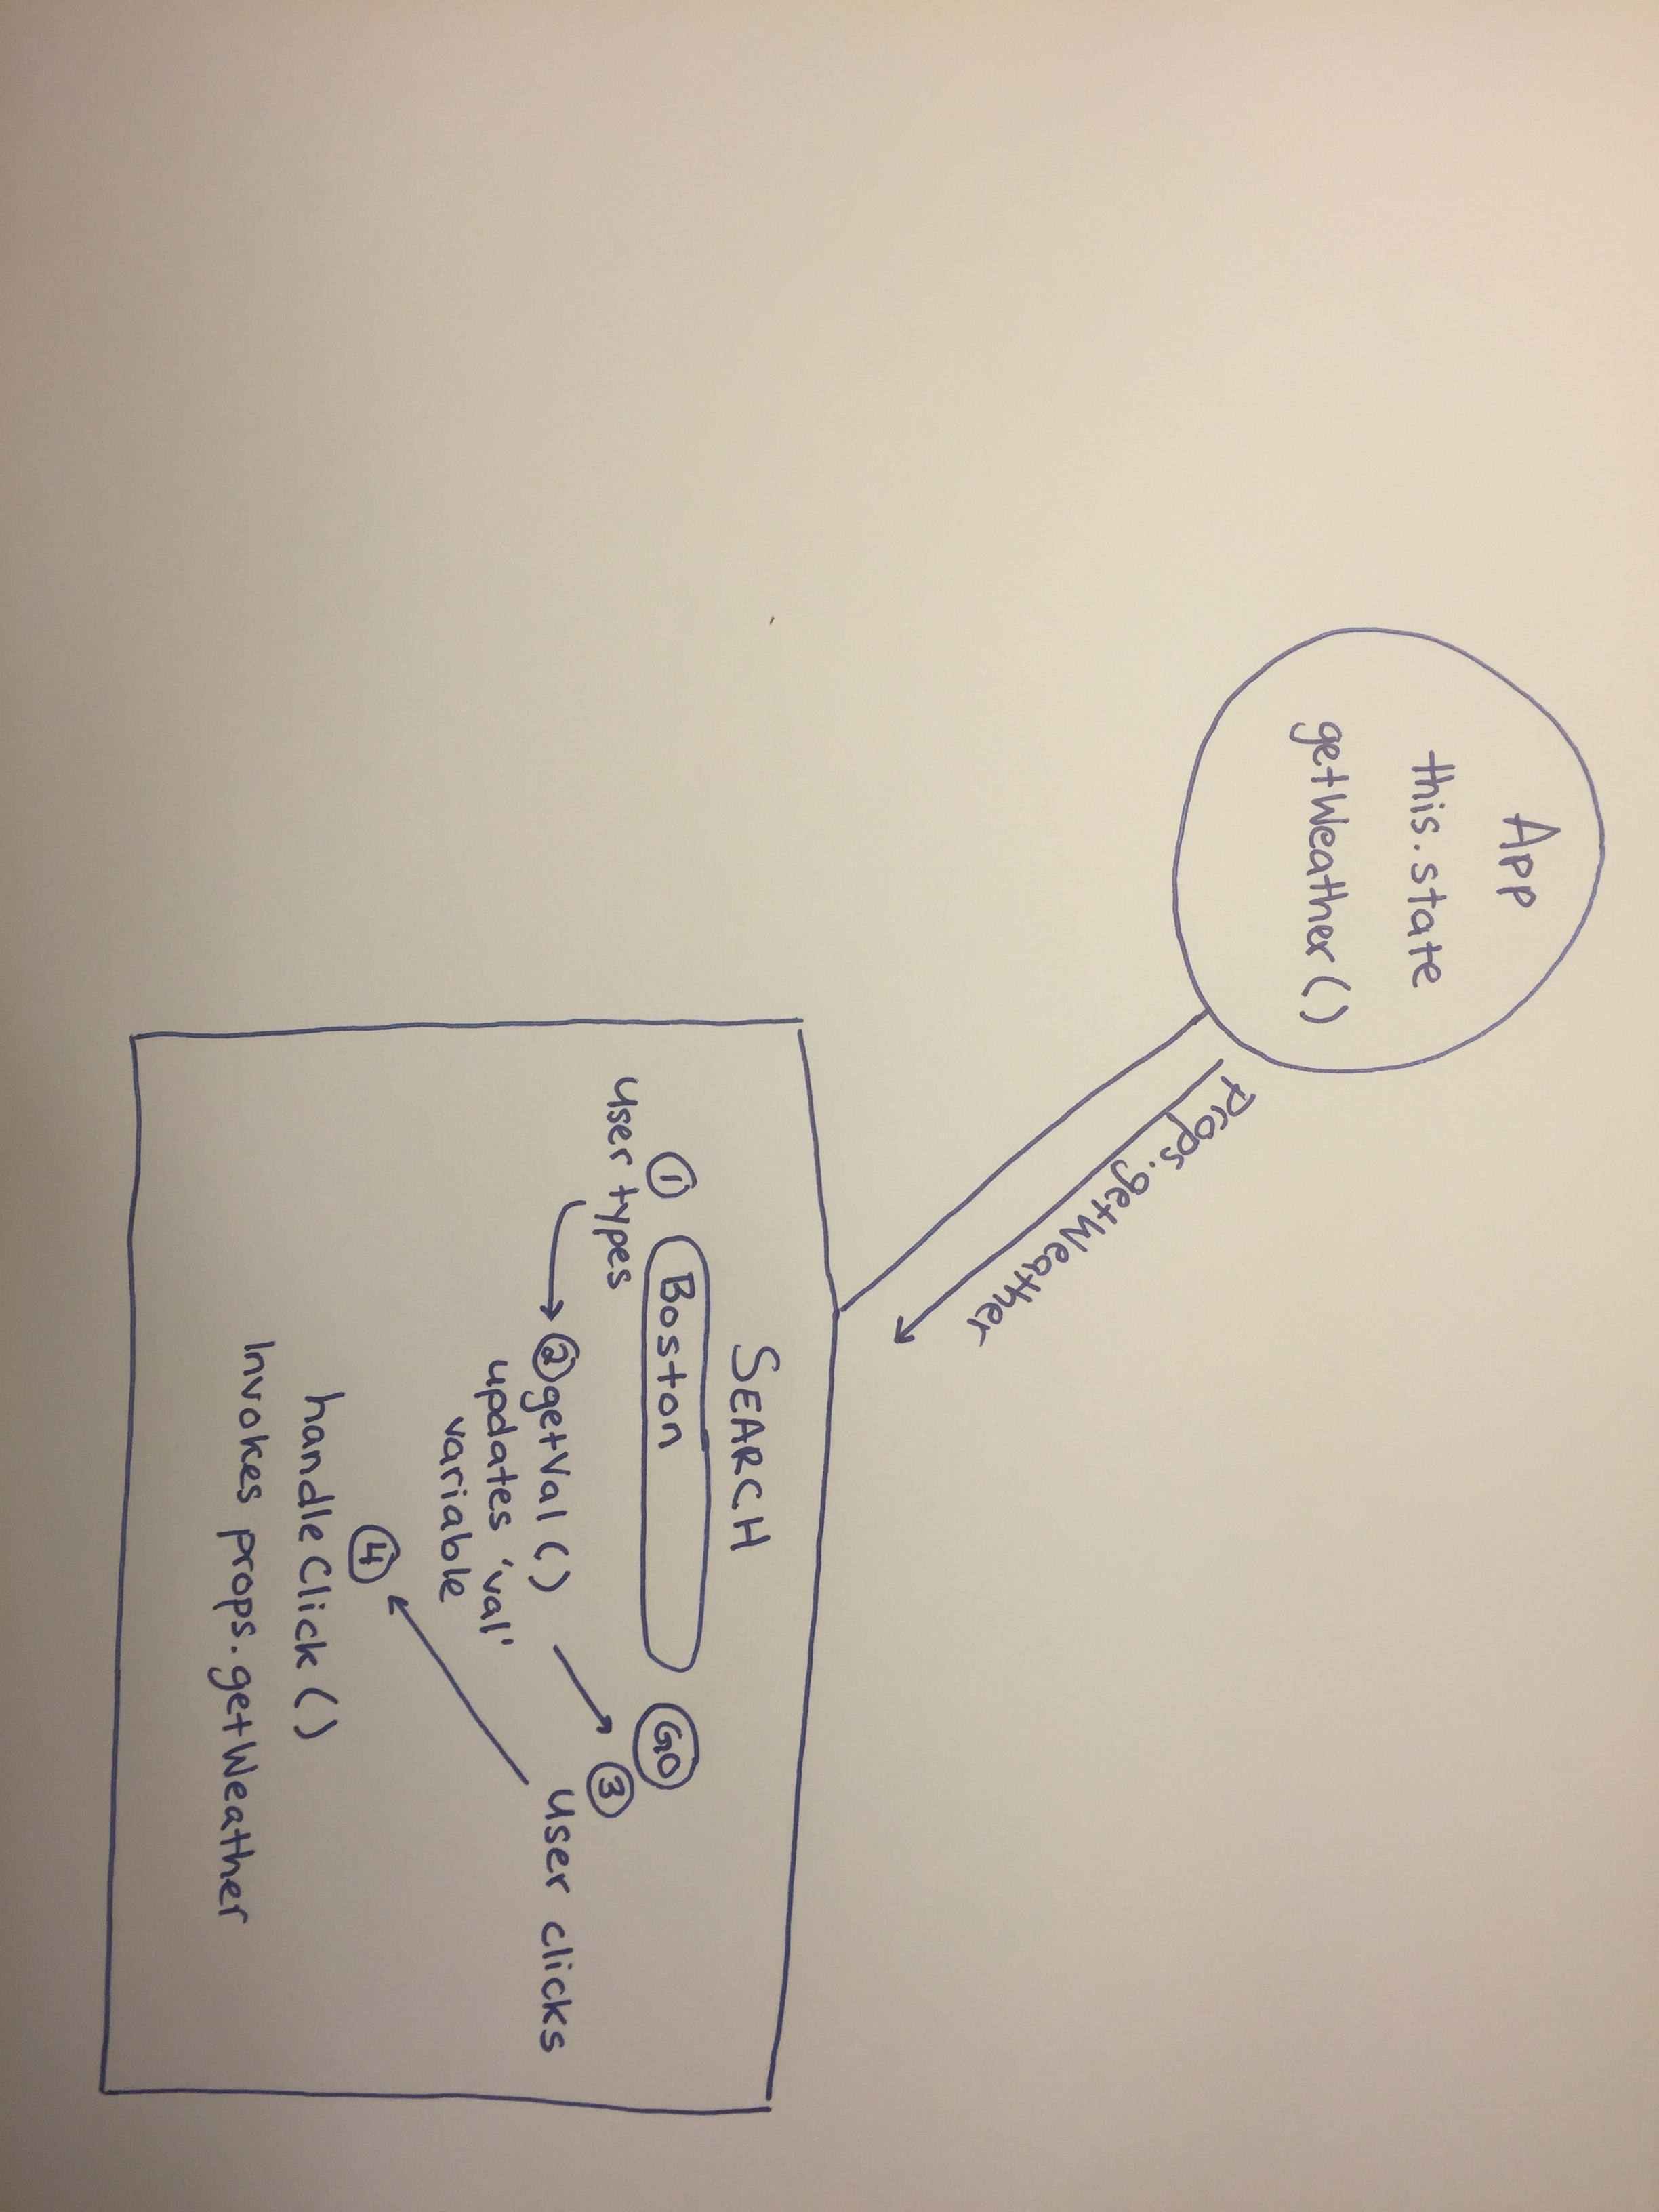 App
this.state
getWeather()
props.getWeather
SEARCH
① Boston GO
user types
② getVal()
updates 'val'
variable
③
user clicks
④
handleClick()
Invokes props.getWeather